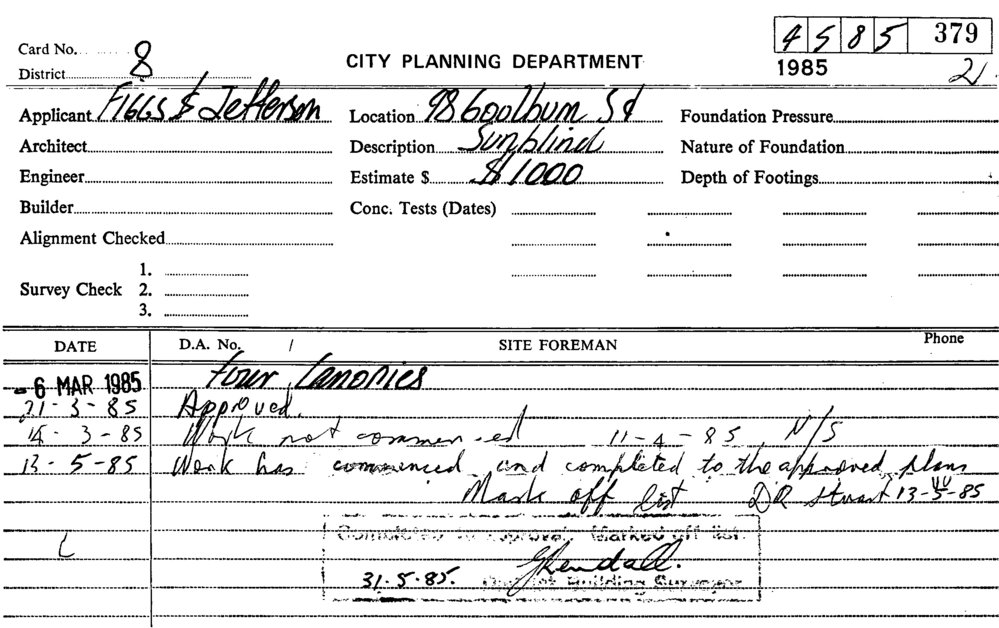 4585 379
Card No. 8
CITY PLANNING DEPARTMENT
1985 21.
District
Applicant FIGGS & Jefferson Location 98 Goolburn St Foundation Pressure
Architect Description Sunblind Nature of Foundation
Engineer Estimate $ $1000 Depth of Footings
Builder Conc. Tests (Dates)
Alignment Checked
1.
Survey Check 2.
3.
DATE D.A. No. / SITE FOREMAN Phone
- 6 MAR 1985 Four Canopies
21-3-85 Approved.
3-85 Work not commenced 11-4-85 N/S
13-5-85 Work has commenced and completed to the approved plans
Mark off list DR Stuart 13-5-85
Completed to approval. Marked off list.
GKendall.
31.5.85. District Building Surveyor